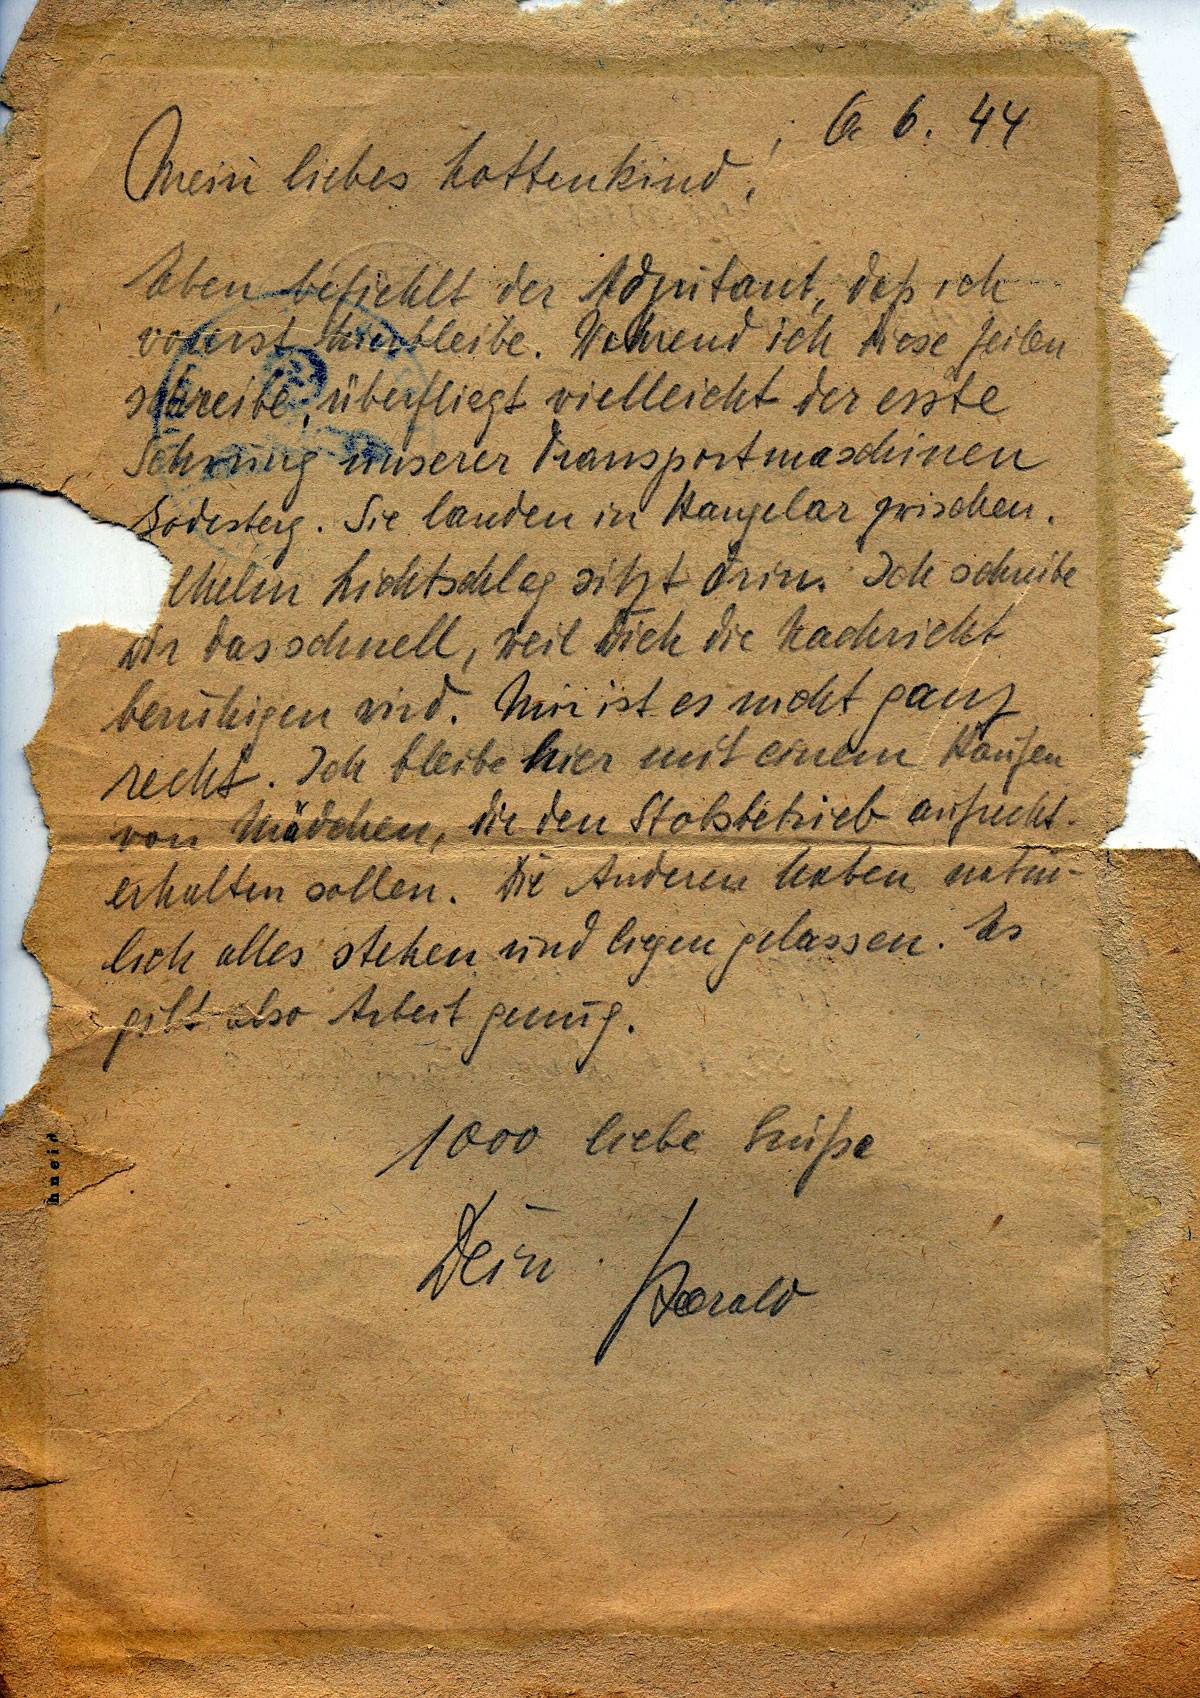 6. 6. 44
Mein liebes Lottenkind!
Eben befiehlt der Adjutant, daß ich
vorerst hierbleibe. Während ich diese Zeilen
schreibe, überfliegt vielleicht der erste
Schwung unserer Transportmaschinen
Godesberg. Sie landen in Hangelar zwischen.
lhelm Lichtschlag sitzt drin. Ich schreibe
Dir das schnell, weil Dich die Nachricht
beruhigen wird. Mir ist es nicht ganz
recht. Ich bleibe hier mit einem Haufen
von Mädchen, die den Stabsbetrieb aufrecht-
erhalten sollen. Die Anderen haben natür-
lich alles stehen und liegen gelassen. Es
gibt also Arbeit genug.
1000 liebe Küße
Dein Harald
hneid